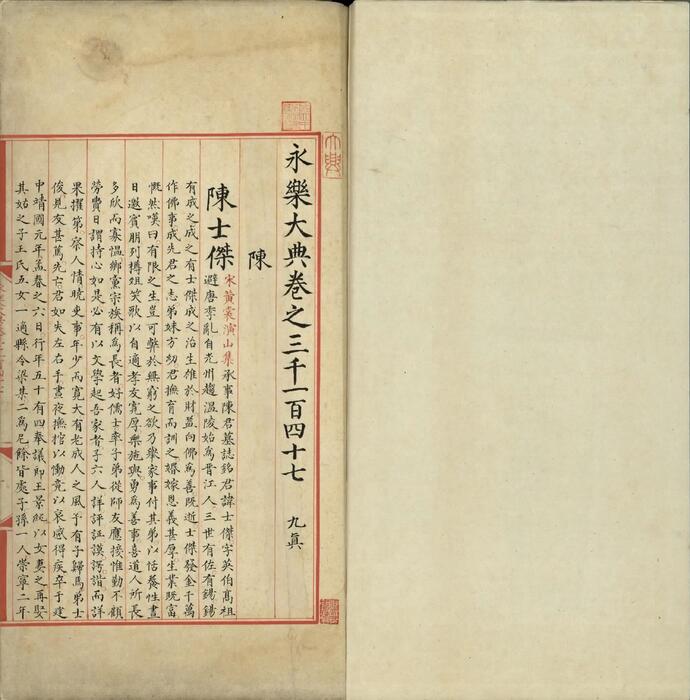 永樂大典卷之三千一百四十七 九真
陳
陳士傑 宋黃裳演山集承事陳君墓誌銘君諱士傑字英伯高祖
避唐季亂自光州趨溫陵始爲晉江人三世有佐有錫錫
有成之成之有士傑成之治生雖於財益向佛爲善既逝士傑發金千萬
作佛事成先君之志弟妹方幼君撫育而訓之婚嫁恩義甚厚生業既富
慨然嘆曰有限之生豈可弊於無窮之欲乃舉家事付其弟以恬養性晝
日邀賓朋列摶俎笑歌以自適孝友寬厚樂施與勇爲善事喜道人所長
多欣而寡慍鄉黨宗族稱爲長者好儒士率子弟從師友應接惟勤不顧
勞費日謂持心如是必有以文學起吾家者子六人詳評証謨諤諧而詳
果擢第察人情曉吏事年少而寬大有老成人之風予有子歸焉弟士
俊見友甚篤先亡君如失左右手晝夜撫棺以慟竟以哀感得疾卒于建
中靖國元年孟春之六日行年五十有四奉議郎王景純以女妻之再娶
其姑之子王氏五女一適縣令梁某二爲尼餘皆處子孫一人崇寧二年